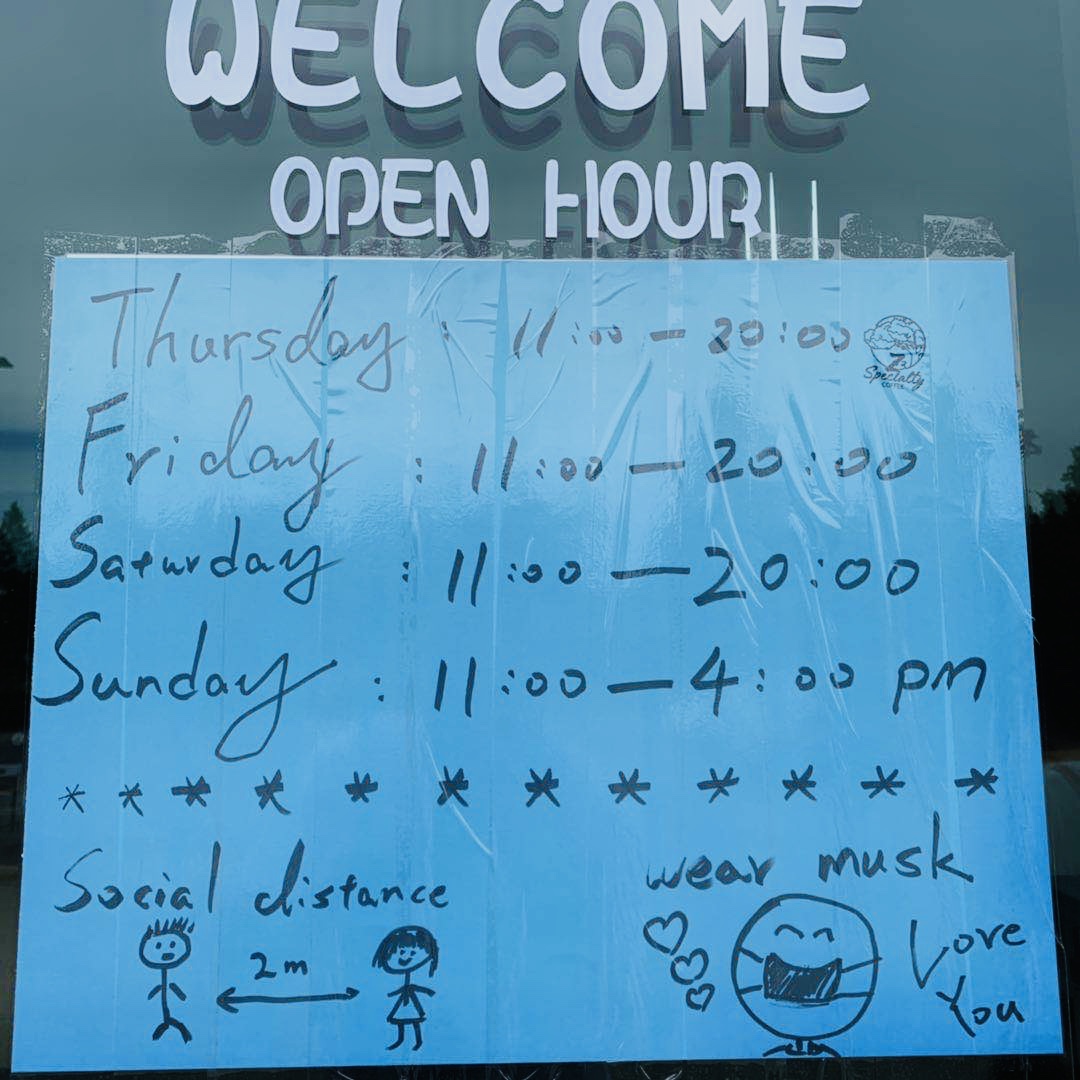 WELCOME
OPEN HOUR
Thursday : 11:00 — 20:00
Specialty
COFFEE
Friday : 11:00 — 20:00
Saturday : 11:00 — 20:00
Sunday : 11:00 — 4:00 pm
* * * * * * * * * * * *
Social distance
2m
wear musk
Love
You